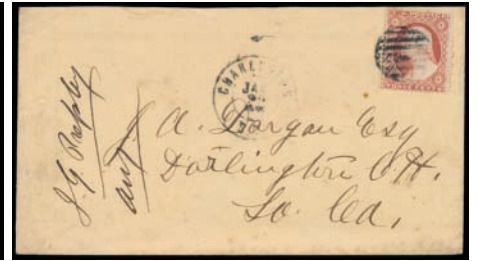 CHARLESTON
JA
J. G. Pressley
Ans.
A. Dargan Esq
Darlington C. H.
So. Ca.